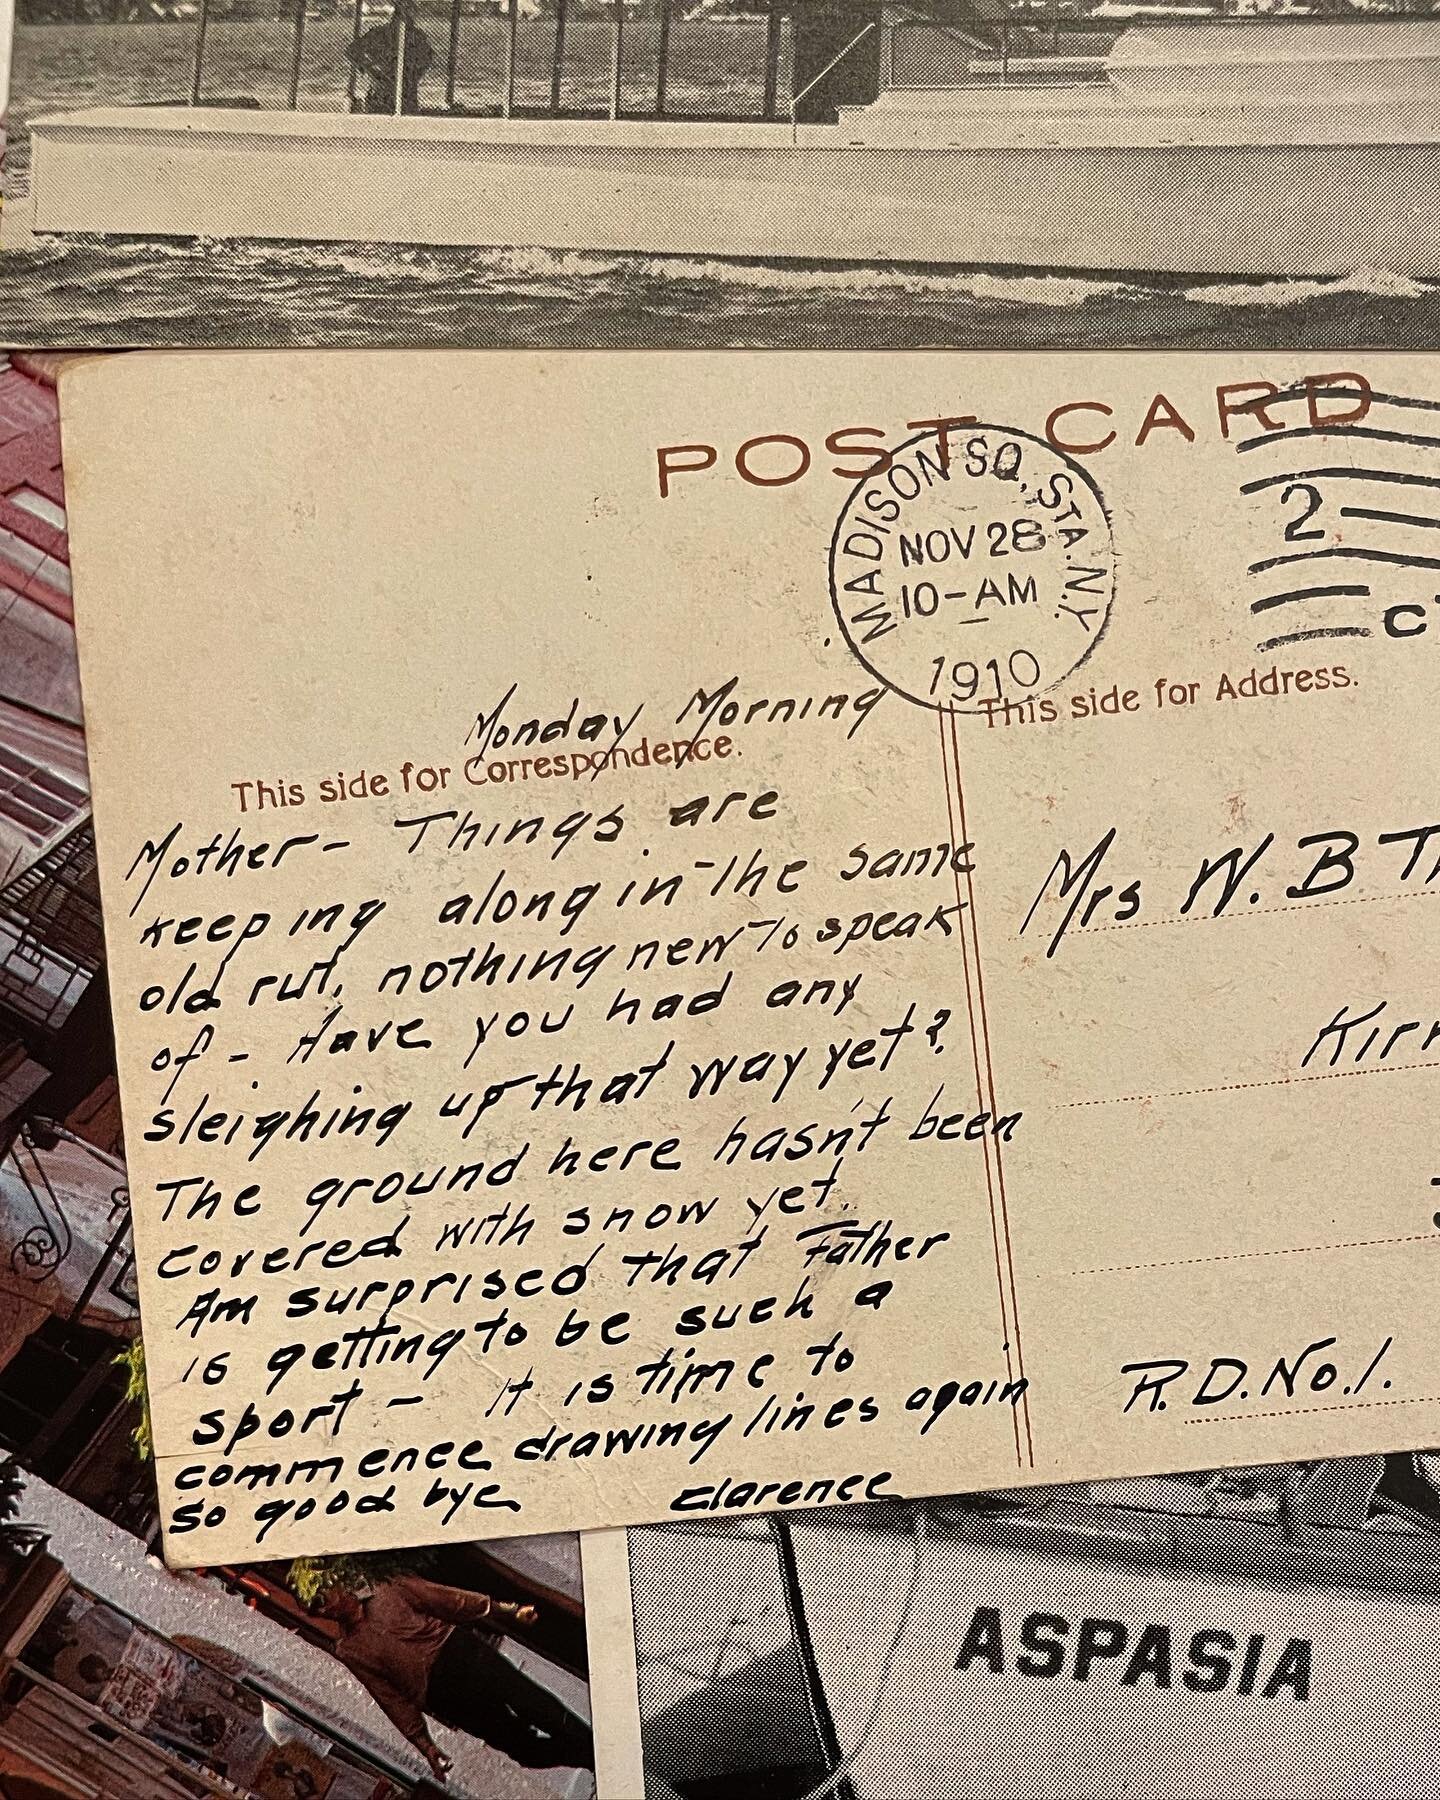 POST CARD
MADISON SQ. STA. N.Y.
NOV 28
10-AM
1910
2
Monday Morning
This side for Correspondence.
This side for Address.
Mother- Things are
keeping along in the same
old rut, nothing new to speak
of - Have you had any
sleighing up that way yet?
The ground here hasn't been
covered with snow yet.
Am surprised that Father
is getting to be such a
sport - It is time to
commence drawing lines again
so good bye Clarence
Mrs W. B
R.D. No. 1.
ASPASIA